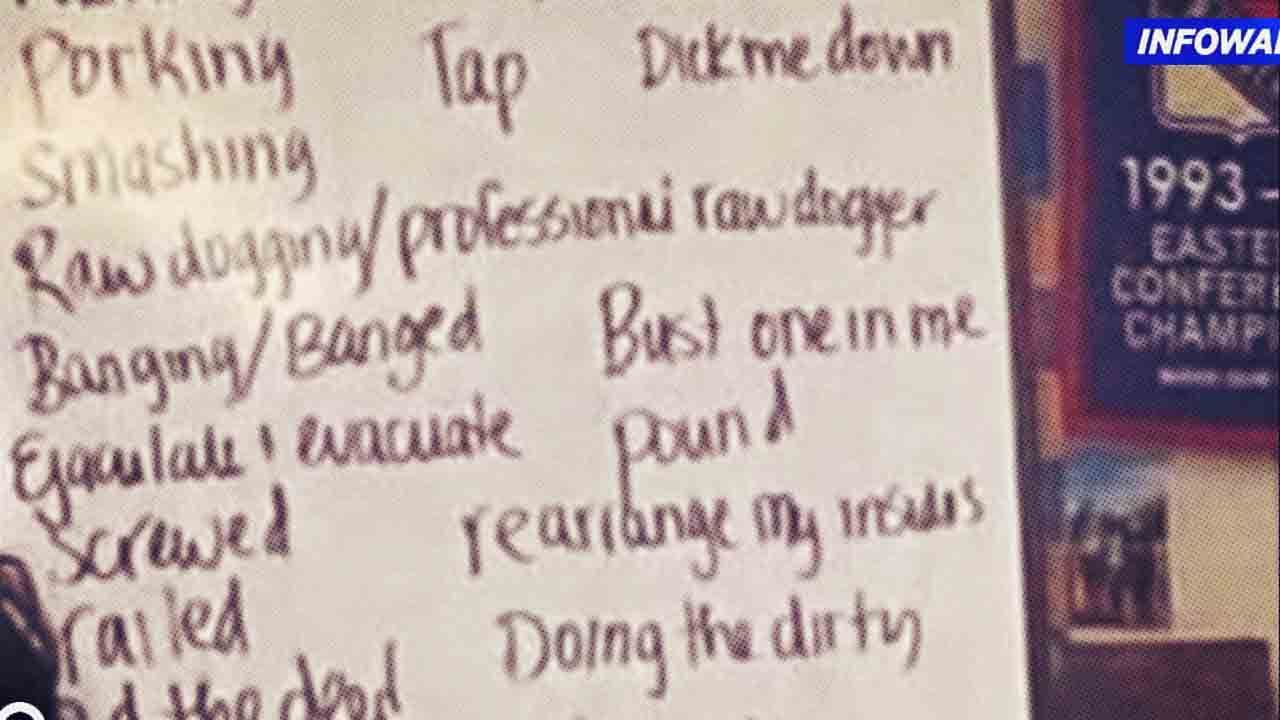 Porking Tap Dick me down
Smashing
Raw dogging/professional raw dogger
Banging/Banged Bust one in me
Ejaculate evacuate pound
Screwed rearrange my insides
railed Doing the dirty
the deed
INFOWA
1993 -
EASTE
CONFER
CHAMPI